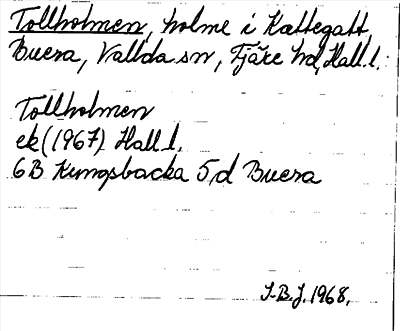 Tollholmen, holme i Kattegatt,
Buera, Vallda sn, Fjäre hd, Hall. l.
Tollholmen
ek (1967) Hall l.
6B Kungsbacka 5,d Buera
I-B.J. 1968.